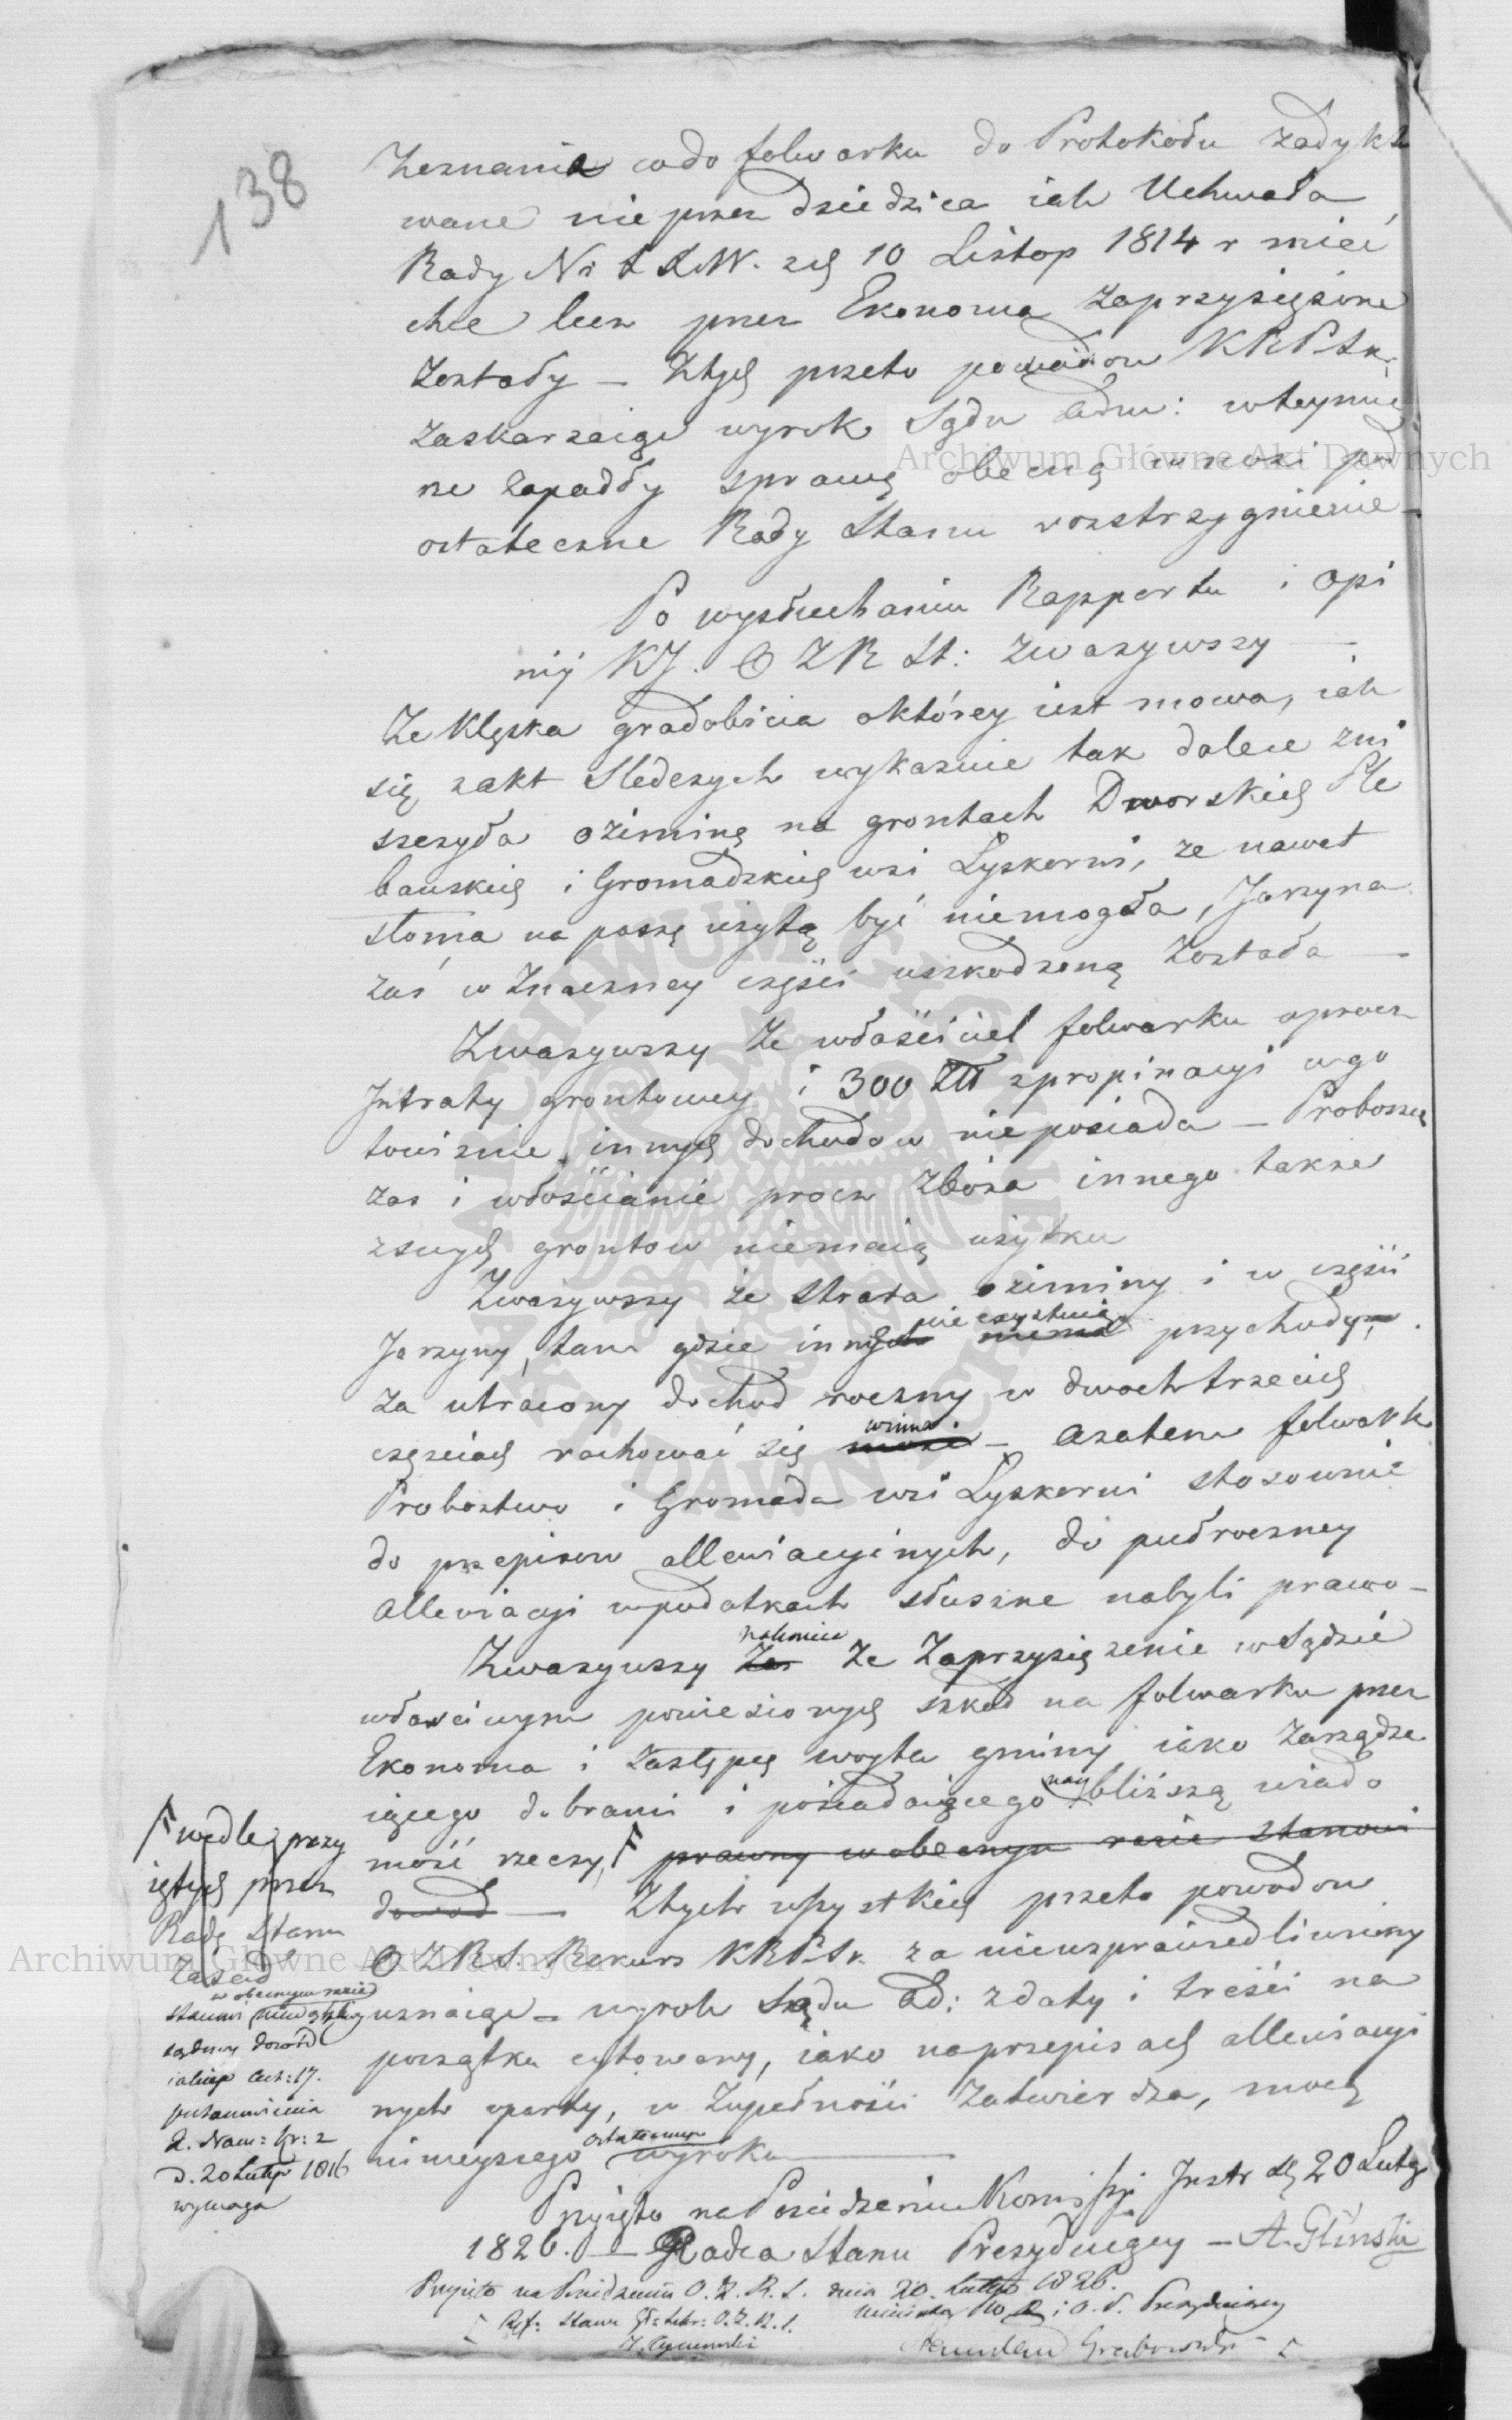 138
Zeznania codo folwarku do Protokołu zadykto
wane nie przez dziedzica iak Uchwała
Rady Nr z 10 Listop 1814 r mieć
chce lecz przez Ekonoma zaprzysiężone
Zostały — Ztych przeto powodow KRPSk.
Zaskarżaiąc wyrok Sądu Adm: wteymie
rze zapadły sprawę obecną wnosi pod
ostateczne Rady Stanu rozstrzygnienie —
Po wysłuchaniu Rapportu i Opi
nij KJ. O Z R St: Zważywszy —
Ze Klęska gradobicia októrey iest mowa, iak
się z akt Sledczych wykazuie tak dalece zni
szczyła oziminę na grontach Dworskich Ple
bańskich i Gromadzkich wsi Lyskorni, ze nawet
słoma na paszę użytą być niemogła, Jarzyna
zaś w Znaczney części uszkodzoną Została —
Zważywszy Ze właściciel folwarku oprocz
Jntraty grontowey i 300 Złł z propinacyi ugo
towiznie innych dochodow nieposiada — Proboszcz
zaś i włościanie procz Zboża innego także
zswych grontow niemaią użytku
Zważywszy że strata oziminy i w części
nie exystuią
Jarzyny, tam gdzie innych niema przychody,
za utracony dochod roczny w dwoch trzecich
winna
częściach rachować się może — azatem folwark
Probostwo i Gromada wsi Lyskorni stosownie
do przepisow allewiacyinych, do pułroczney
allewiacyi wpodatkach słuszne nabyli prawo —
nakoniec
Zważywszy Zas Ze Zaprzysiężenie w Sądzie
właściwym poniesionych szkod na folwarku przez
Ekonoma i Zastępcę woyta gminy iako Zarządza
iącego dobrami i posiadaiącego nay bliższą wiado
mość rzeczy, F prawny w obecnym razie stanowi
dowod — Ztych wszystkich przeto powodow
O Z R S. Rekurs KRPSk. za nieusprawiedliwiony
uznaiąc — wyrok Sądu Ad: z daty i treści na
początku cytowany, iako na przepisach allewiacyi
nych oparty, w Zupełności Zatwierdza, mocą
ostatecznego
ninieyszego wyroku
F wedle przy
iętych przez
Radę Stanu
Zasad
w obecnym razie
stanowi niewątpliwy
sądowy dowód
iakiego Art: 17.
postanowienia
X. Nam: Kr: z
D. 20 Lutego 1816
wymaga
Przyięto na Posiedzeniu Kommissyi Jnstr d. 20 Lutego
1826. — Radca Stanu Prezyduiący — A. Gliński
Przyięto na Posiedzeniu O. Z. R. S. dnia 20. Lutego 1826.
Ref: Stanu O. Z. R. S. Minister W R i O. P. Prezyduiący
Stanisław Grabowski
Archiwum Główne Akt Dawnych
Archiwum Główne Akt Dawnych
ARCHIWUM GŁÓWNE AKT DAWNYCH